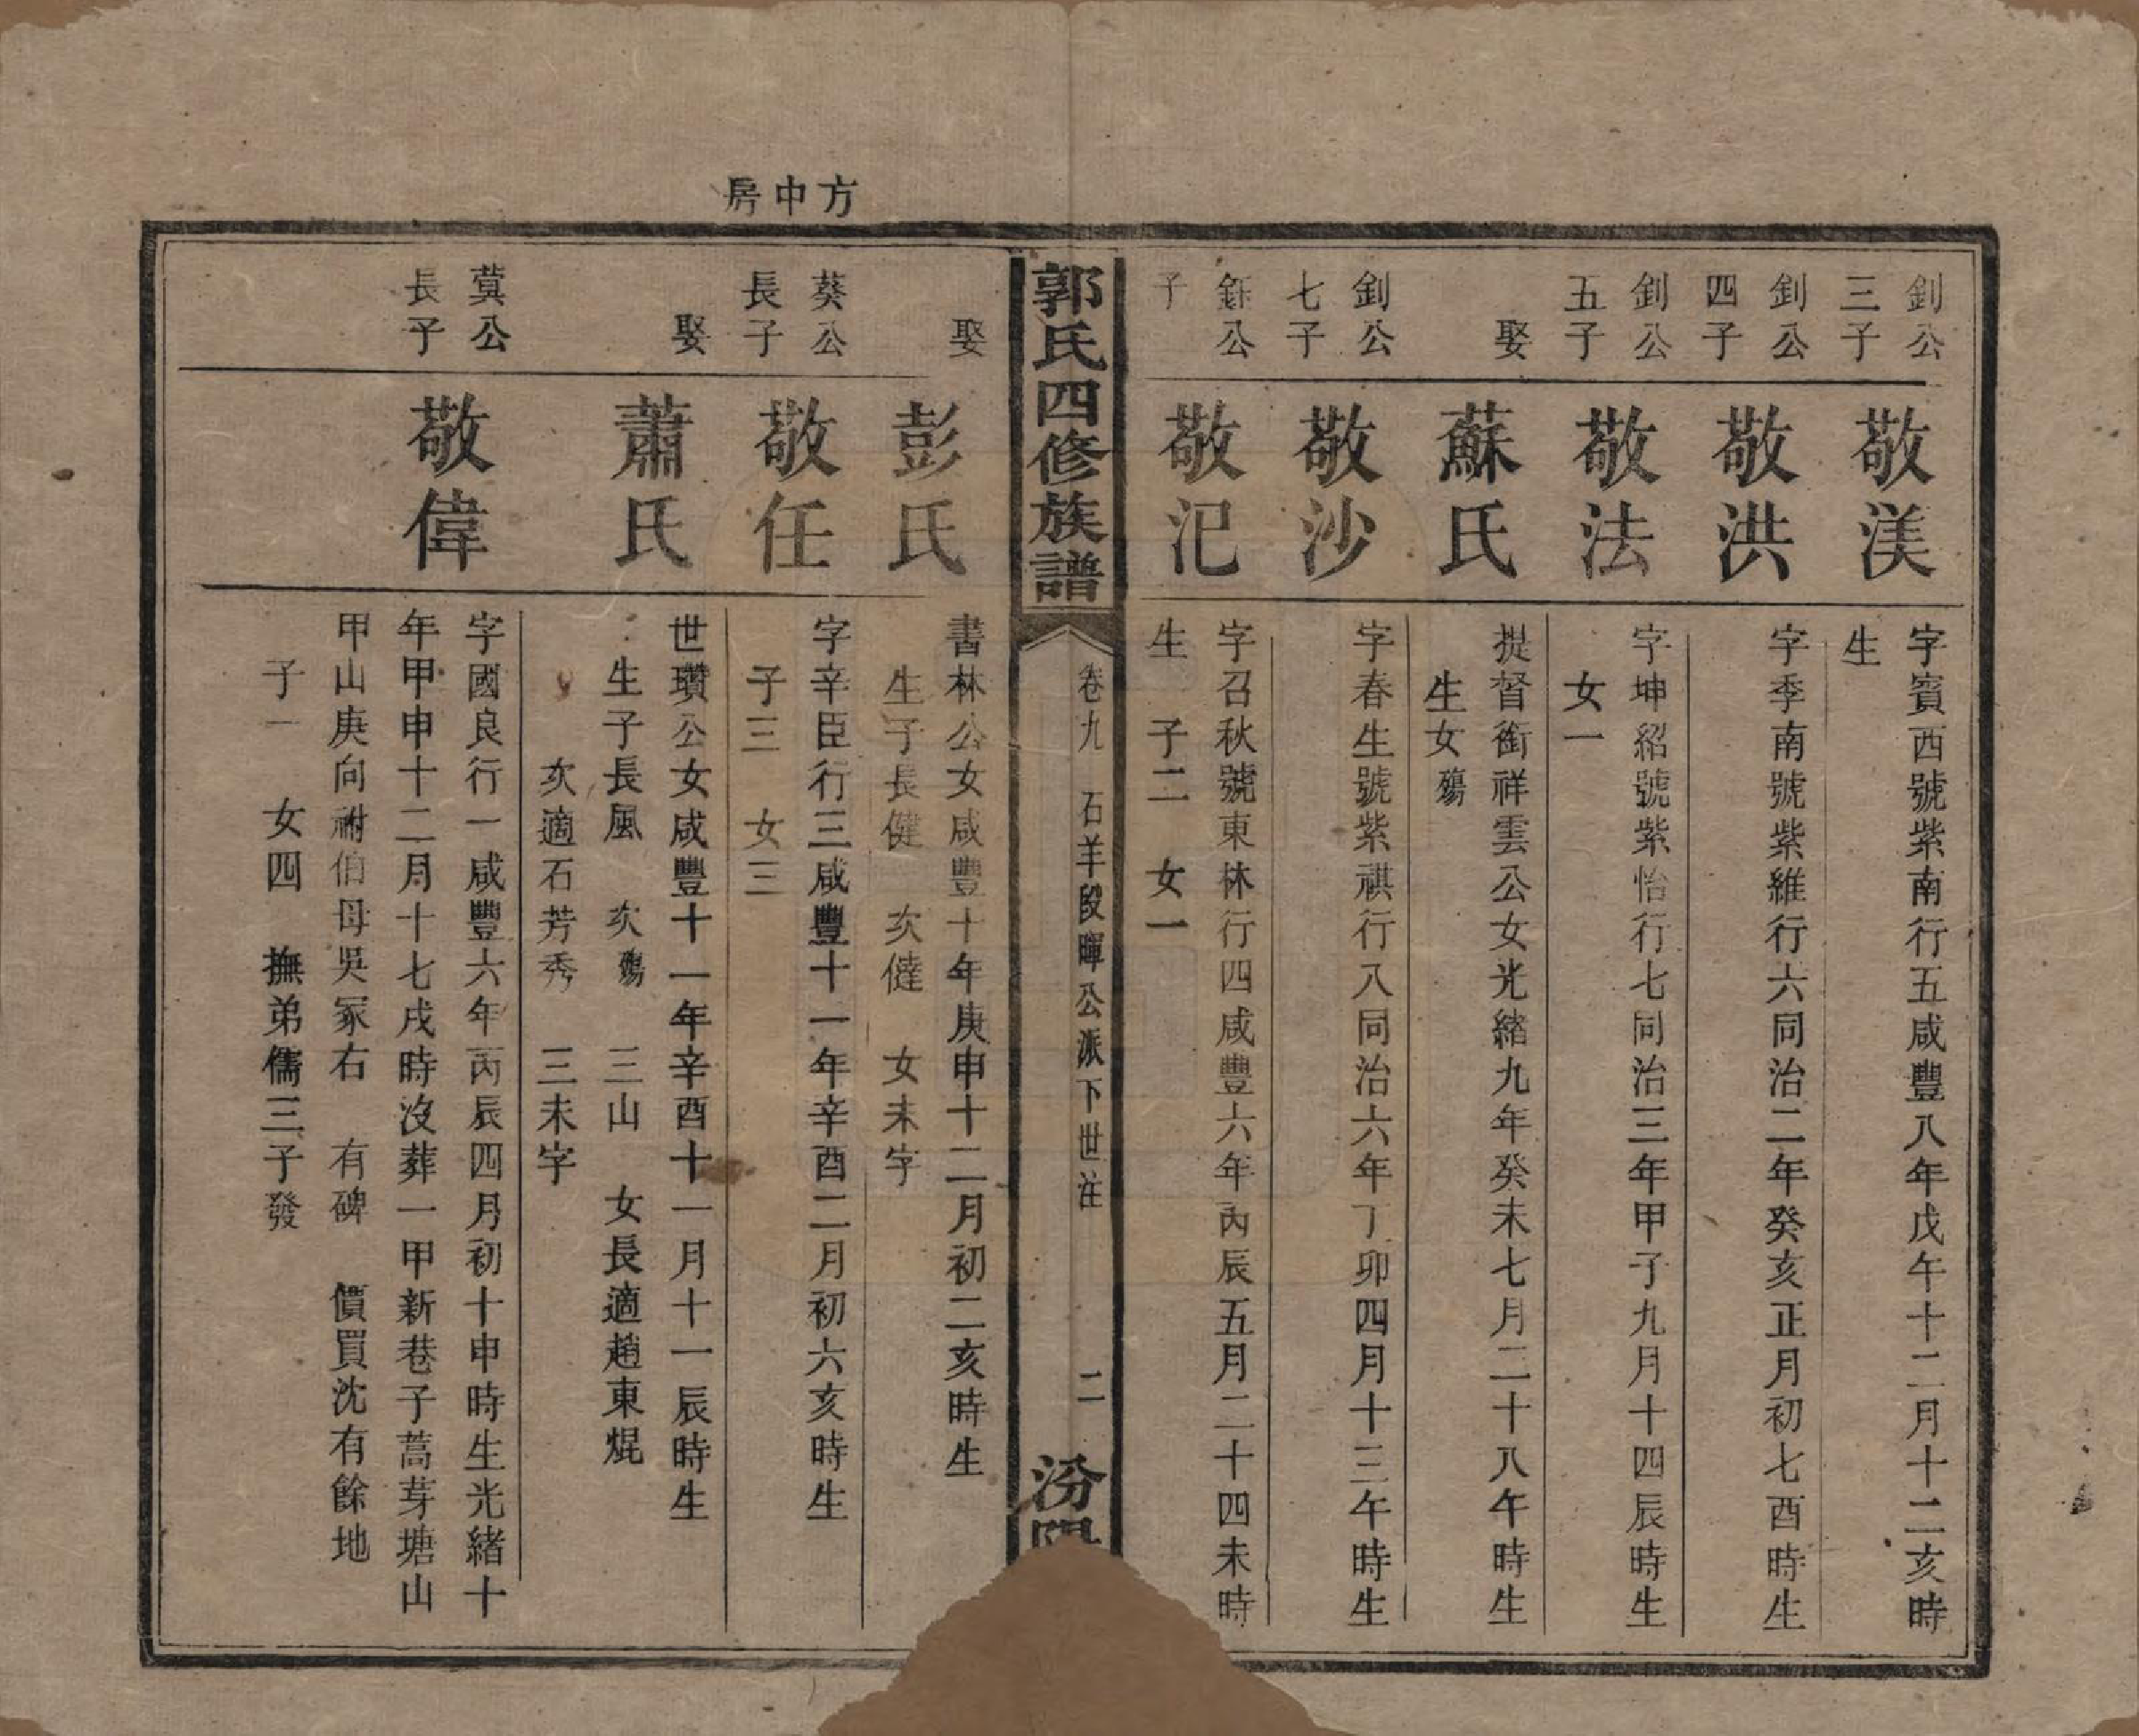 釗公
三子
敬渼
字賓西號紫南行五咸豐八年戊午十二月十二亥時
生
釗公
四子
敬洪
字季南號紫維行六同治二年癸亥正月初七酉時生
釗公
五子
敬法
字坤紹號紫怡行七同治三年甲子九月十四辰時生
女一
娶
蘇氏
提督銜祥雲公女光緒九年癸未七月二十八午時生
生女殤
釗公
七子
敬沙
字春生號紫祺行八同治六年丁卯四月十三午時生
鉌公
子
敬汜
字召秋號東林行四咸豐六年丙辰五月二十四未時
生 子二 女一
郭氏四修族譜
卷九 石羊段暉公派下世注 二
汾陽
方中房
娶
彭氏
書林公女咸豐十年庚申十二月初二亥時生
生子長健 次健 女未字
葵公
長子
敬任
字辛臣行三咸豐十一年辛酉二月初六亥時生
子三 女三
娶
蕭氏
世瓚公女咸豐十一年辛酉十一月十一辰時生
生子長風 次殤 三山 女長適趙東焜
次適石芳秀 三未字
蓂公
長子
敬偉
字國良行一咸豐六年丙辰四月初十申時生光緒十
年甲申十二月十七戌時沒葬一甲新巷子蒿芽塘山
甲山庚向祔伯母吳冢右 有碑 價買沈有餘地
子一 女四 撫弟儒三子發